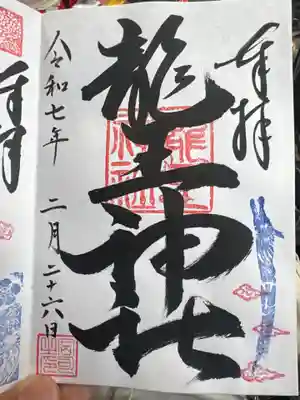 奉拝
龍王神社
令和七年 二月二十六日
奉拝